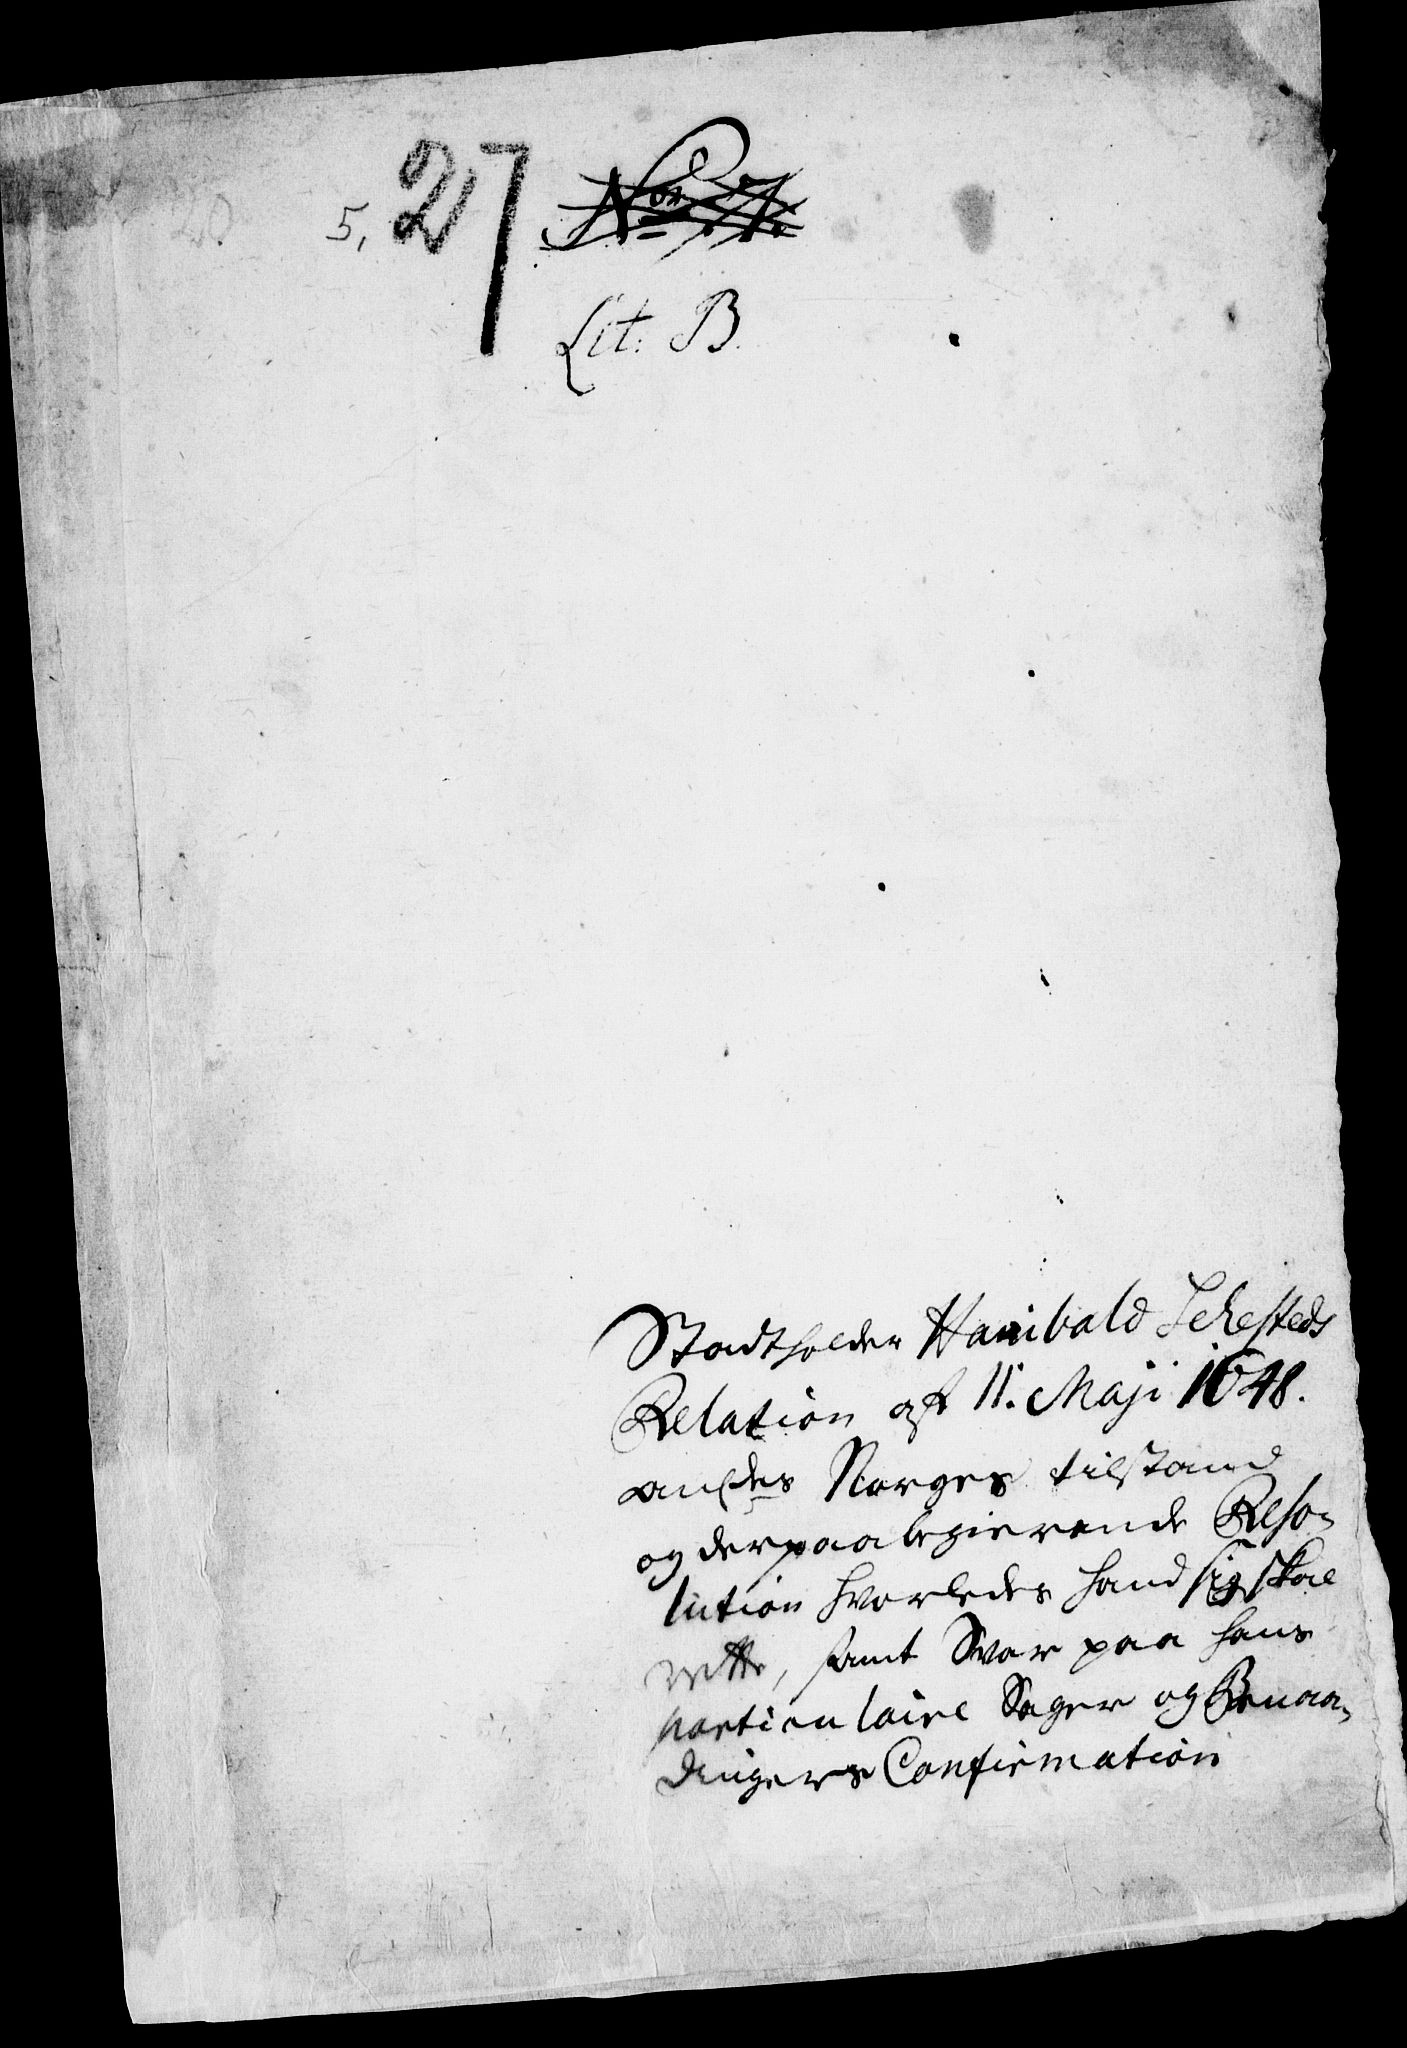 20 5, 27
Lit: B.
Stadtholder Hanibald Sehesteds
Relation af 11. Maji 1648.
Norges tilstand
og derpaa begierende Reso-
lution hvorledes hand sig skal
rette, samt Svar paa hans
particulaire Sager og Benaa-
dingers Confirmation